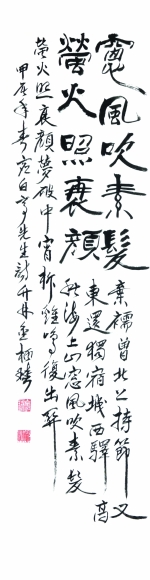 窻風吹素髮
螢火照衰顔
棄襦曾北上持節又
東還獨宿城西驛高
秋海上山窻風吹素髮
螢火照衰顔夢破中宵柝雞鳴復出關
甲辰年春录白先生詩